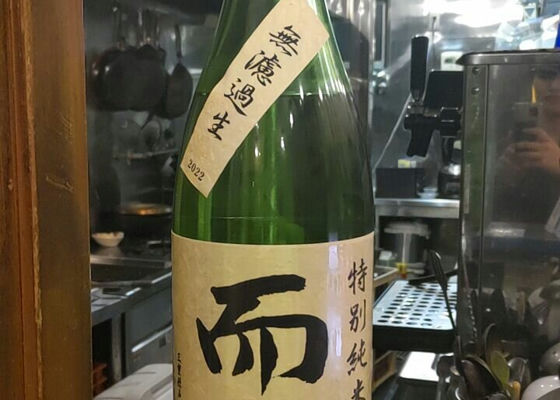 無濾過生
2022
特別純米
而